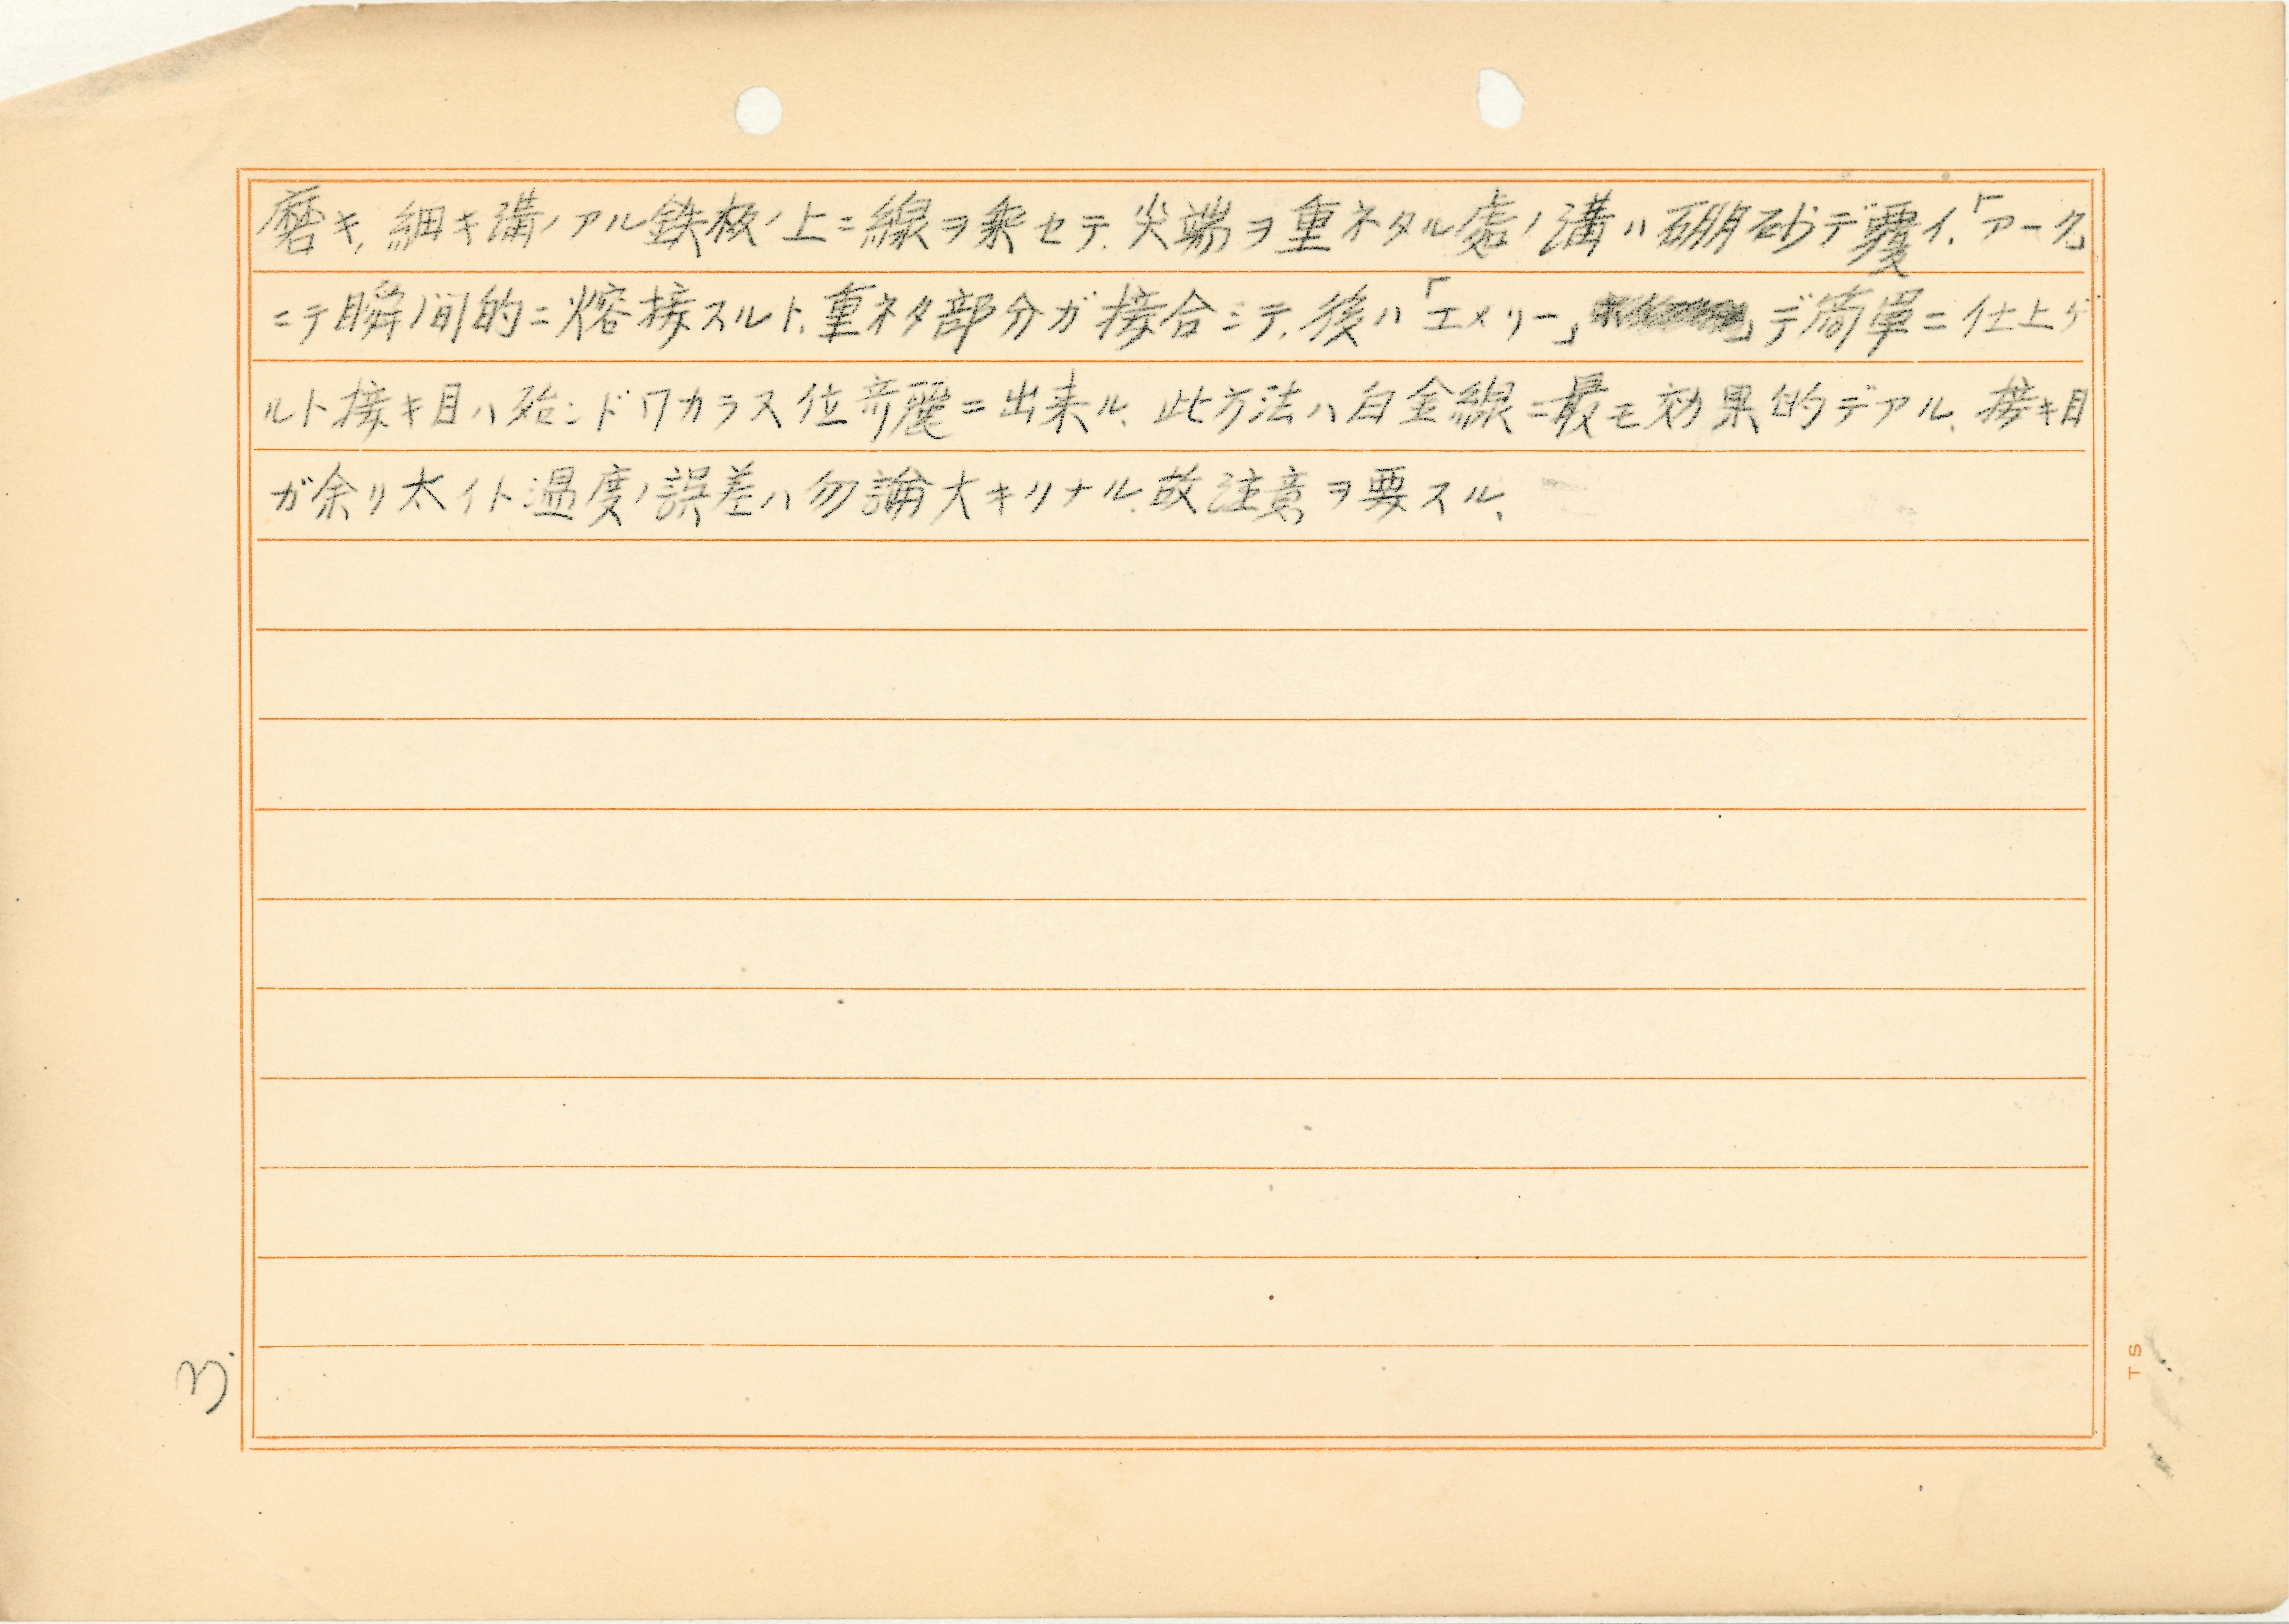 磨キ、細キ溝ノアル鉄板ノ上ニ線ヲ乗セテ、尖端ヲ重ネタル處ノ溝ハ硼砂デ覆イ、「アーク」
ニテ瞬間的ニ熔接スルト、重ネタ部分ガ接合シテ、後ハ「エメリー」デ簡單ニ仕上ゲ
ルト接キ目ハ殆ンドワカラス位竒麗ニ出来ル、此方法ハ白金線ニ最モ効果的デアル、接キ目
ガ余リ太イト温度ノ誤差ハ勿論大キクナル、故注意ヲ要スル、
3.
TS